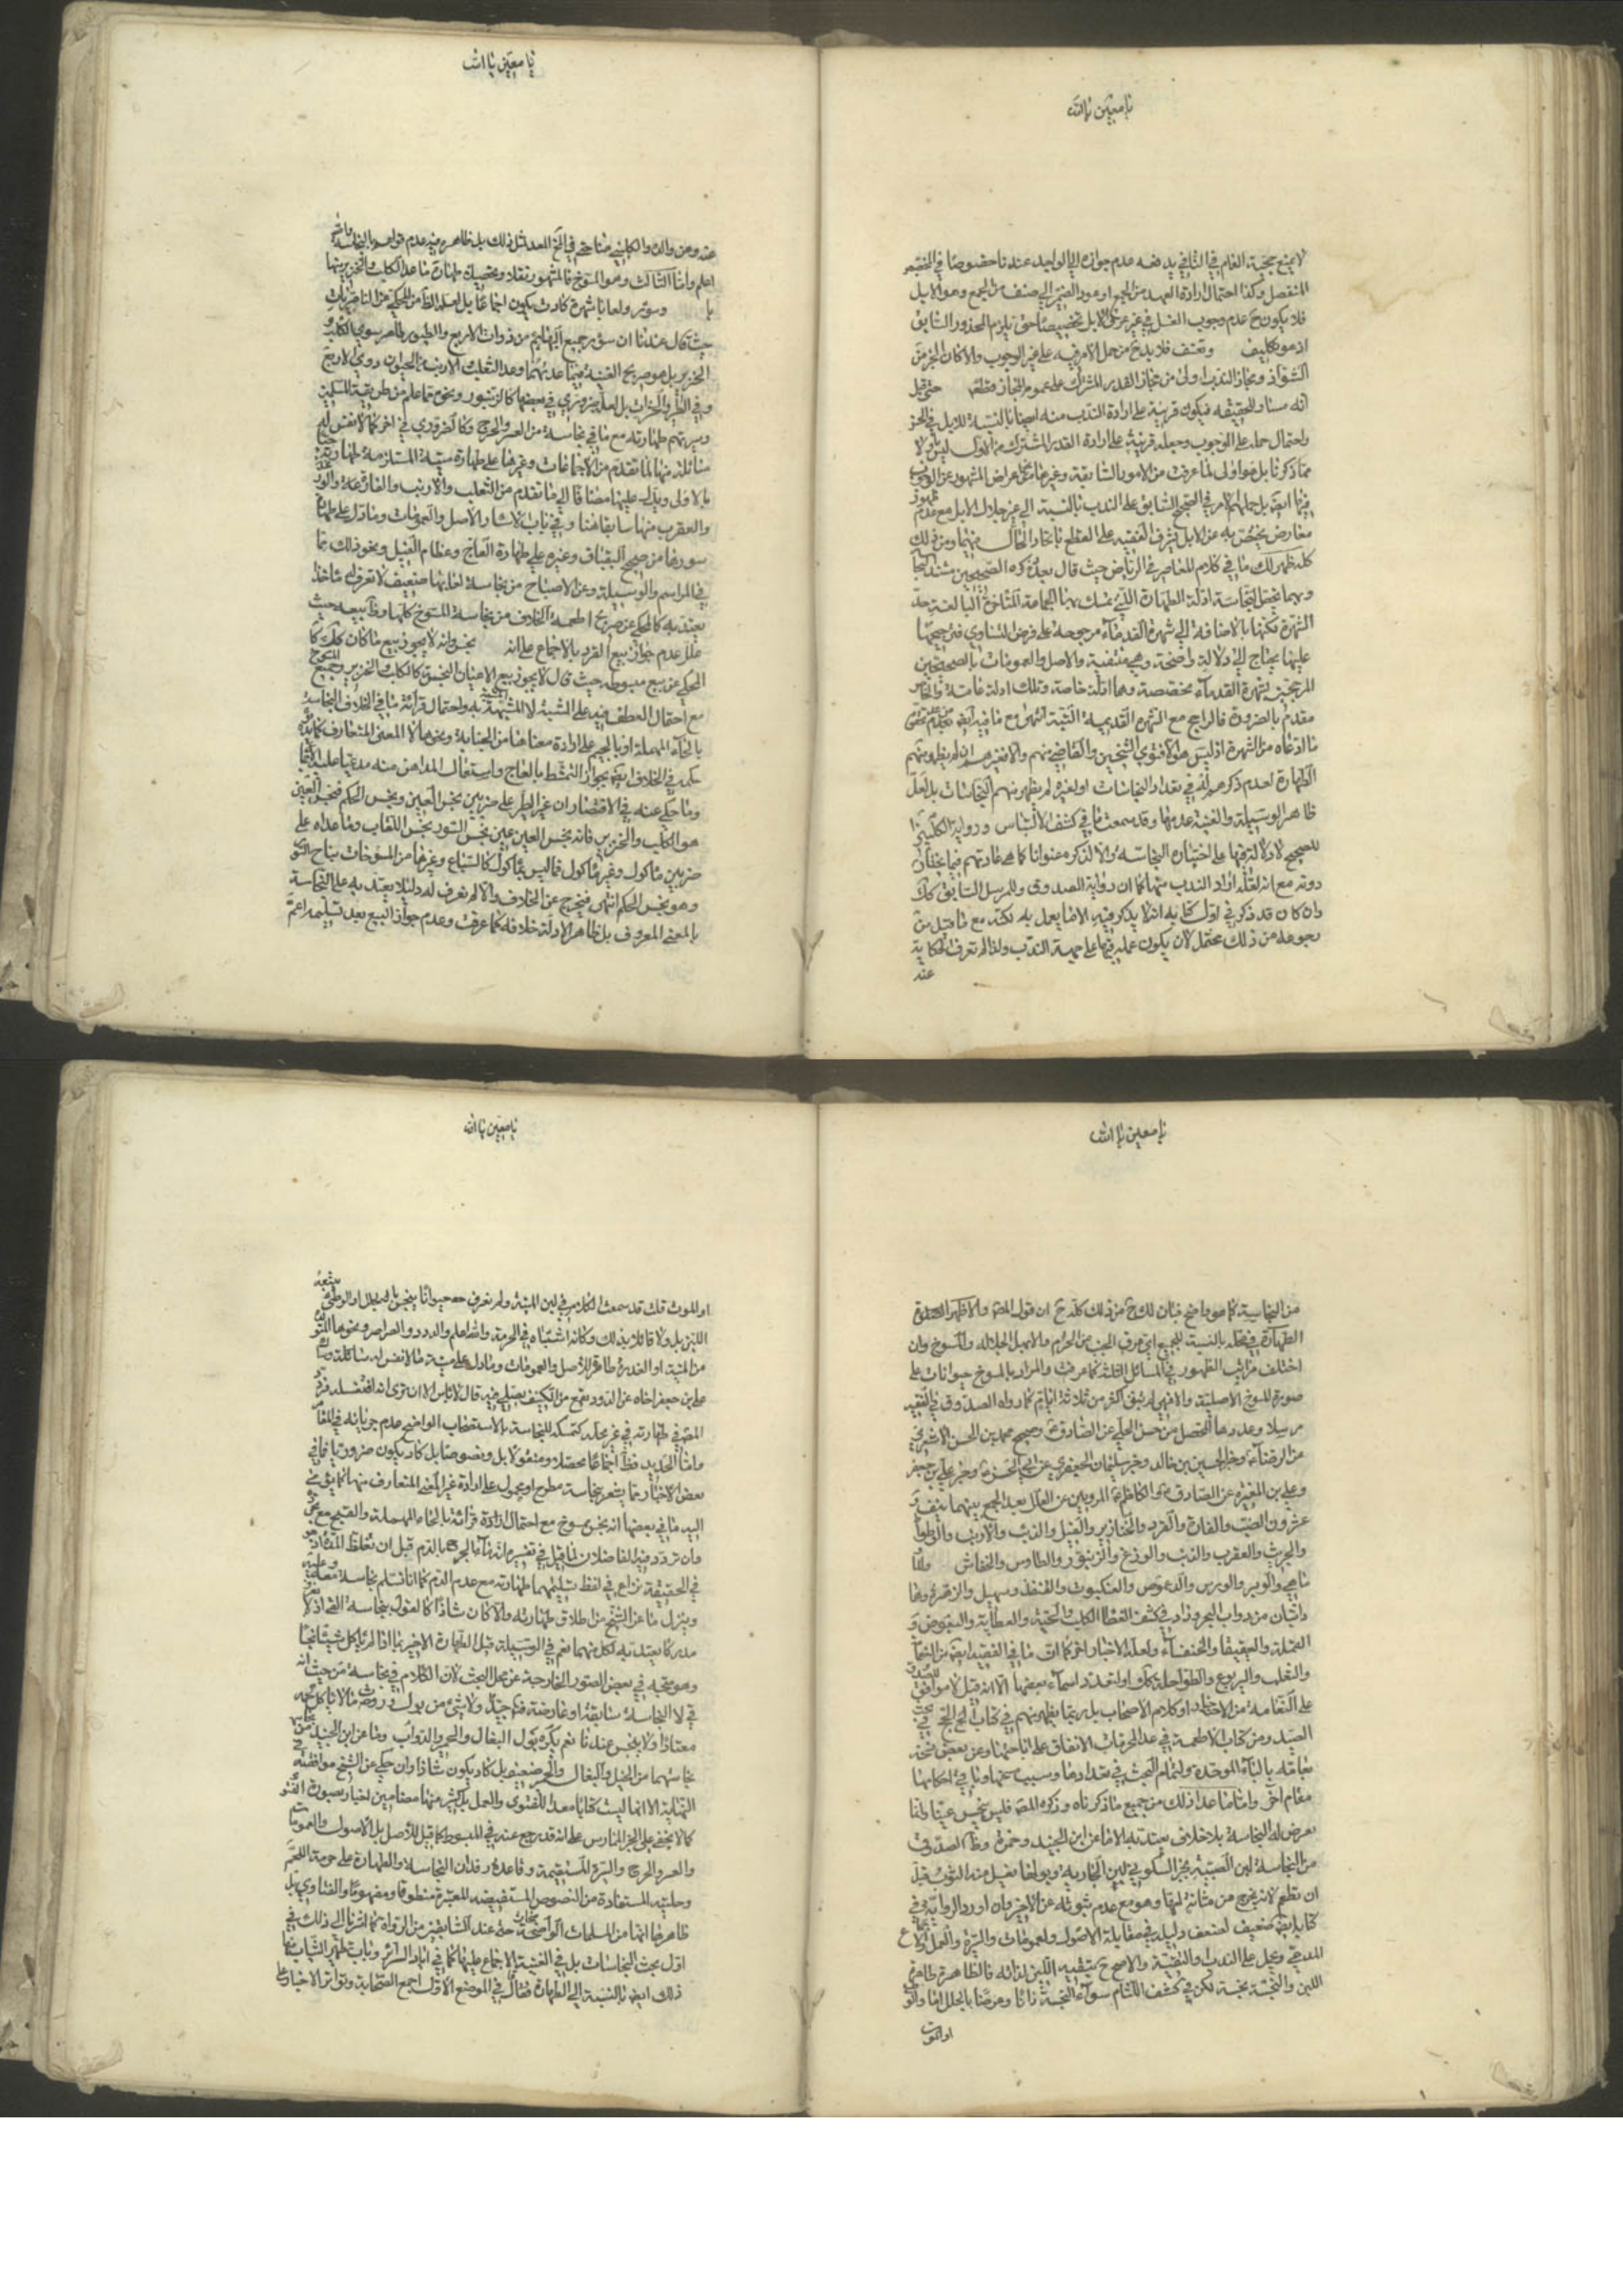 يا معين يا الله
لا يمنع حجية العام في الثاني يدفعه عدم جوازه الى الواحد عندنا خصوصا في المخصص
المنفصل وكذا احتمال ارادة العهد من الجمع او عود الضمير الى صنف من الجمع وهو الابل
فلا يكون ح عدم وجوب الغسل في غير عرق الابل تخصيصا حتى يلزم المحذور السابق
اذ هو تكليف وتعسف فلا بد ح من حمل الامر فيه على غير الوجوب والا كان الخبر من
الشواذ ومجاز الندب اولى من مجاز القدر المشترك على عموم المجاز قطعا حتى قيل
انه مساو للحقيقة فيكون قرينة على ارادة الندب منه ايضا بالنسبة للابل في الخبر
واحتمال حمله على الوجوب وجعله قرينة على ارادة القدر المشترك من الاول ليس باولى
مما ذكرنا بل هو اولى لما عرفت من الامور السابقة وغيرها من اعراض المشهور عن الوجوب
معارض يختص به عن الابل فيشرف الفقيه على القطع باتحاد الحال فيهما ومن ذلك
كله ظهر لك ما في كلام المعاصر في الرياض حيث قال بعد ذكره الصحيحين مشيرا
وبهما يخص الاصالة ادلة الطهارة التي تمسك بها الجماعة المتاخرة البالغة حد
الشهرة لكنها بالاضافة الى شهرة القدماء مرجوحة على فرض التساوي فترجيحها
عليها يحتاج الى دلالة واضحة وهي منتفية والاصل والعمومات بالصحيحين
المرجحين بشهرة القدماء مخصصة وهما ادلة خاصة وتلك ادلة عامة والخاص
مقدم بالضرورة فالراجح مع الشهرة القديمة البتة انتهى
ما ادعاه من الشهرة اذ ليس هو الا فتوى الشيخين والقاضي منهم والا فغيرهم ان لم يظهر منهم
الطهارة لعدم ذكرهم له في تعداد النجاسات او لغيره لم يظهر منهم النجاسات بل لعل
ظاهر الوسيلة والغنية عدمها وقد سمعت ما في كشف الالتباس ورواية الكليني
للصحيح لا دلالة فيها على اختياره النجاسة والا لذكره عنوانا كما هي عادتهم فيما يختارون
دونه مع انه لعله اراد الندب منها كما ان رواية الصدوق للمرسل السابق كذلك
وان كان قد ذكر في اول كتابه انه لا يذكر فيه الا ما يعمل به لكنه مع ما قيل من
رجوعه من ذلك محتمل لان يكون عمله فيها على جهة الندب ولذا لم تعرف الحكاية
عنه
يا معين يا الله
عنه وعن والده والكليني
اعلم واما الثالث وهو المسوخ فالمشهور نقلا وتحصيلا طهارة ما عدا الكلب والخنزير منها
حيث قال عندنا ان سؤر جميع البهايم من ذوات الاربع والطيور طاهر سوى الكلب و
الخنزير بل هو صريح الغنية فيما عديهما وعدا الثعلب والارنب
وفي الطير والحشرات بل لعله ضروري في بعضها كالزنبور ونحوه مما علم من طريقة المسلمين
وسيرتهم طهارته مع ما في نجاسته من العسر والحرج
سائلة منها لما تقدم من الاجماعات وغيرها على طهارة ميتته المستلزمة لطهارته
بالاولى ويدل عليها مضافا الى ما تقدم من الثعلب والارنب والفارة والوزغ
والعقرب منها سابقا هنا وفي باب الاسئار الاصل والعمومات وما دل على طهارة
سورها من صحيح البقباق وغيره على طهارة العاج وعظام الفيل ونحو ذلك فما
في المراسم والوسيلة وعن الاصباح من نجاسة لعابها ضعيف لا نعرف له ماخذا
يعتد به كالمحكي عن صريح اطعمة الخلاف من نجاسة المسوخ كلها
علل عدم جواز بيع القرد بالاجماع على انه نجس وانه لا يجوز بيع ما كان كذلك
المحكي عن بيع مبسوطه حيث قال لا يجوز بيع الاعيان النجسة كالكلب والخنزير وجميع المسوخ
مع احتمال العطف فيه على الشبه لا المشبه به واحتمال قرائة ما في الخلاف النجاسة
بالخاء المهملة او بالجيم على ارادة معناها من الخباثة ونحوها لا المعنى المتعارف
حكمه في الخلاف ايضا بجواز التمشط بالعاج واستعمال المداهن منه مدعيا عليه
وما حكي عنه في الاقتصاد ان غير الطير على ضربين نجس العين ونجس الحكم فنجس العين
هو الكلب والخنزير فانه نجس العين نجس السؤر نجس اللعاب وما عداه على
ضربين ماكول وغير ماكول فما ليس بماكول كالسباع وغيرها من المسوخات مباح السؤر
وهو نجس الحكم انتهى فيخرج عن الخلاف والا لم نعرف له دليلا يعتد به على النجاسة
بالمعنى المعروف بل ظاهر الادلة خلافه كما عرفت وعدم جواز البيع بعد تسليمه اعم
يا معين يا الله
من النجاسة كما هو واضح فبان لك من ذلك كله ح ان قول المص والاظهر
الطهارة في محله بالنسبة للجميع
اختلف مراتب الظهور في المسائل الثلاثة كما عرفت والمراد بالمسوخ حيوانات على
صورة المسوخ الاصلية والا فهي لم تبق اكثر من ثلاثة ايام كما رواه الصدوق في الفقيه
مرسلا وعددها المتحصل من حسن الحلبي عن الصادق ع وصحيح محمد بن الحسن الاشعري
من الرضا ع وخبر الحسين بن خالد وخبر سليمان الجعفري عن ابي الحسن ع وخبر علي بن جعفر
وعلي بن المغيرة عن الصادق ع والكاظم ع المرويين عن العلل بعد الجمع بينهما نيف و
عشرون الضب والفارة والقرد والخنازير والفيل والذئب والارنب والوطواط
والجريث والعقرب والدب والوزغ والزنبور والطاوس والخفاش
ماهي والوبر والورس والدعموص والعنكبوت والقنفذ وسهيل والزهرة وهما
دابتان من دواب البحر وزاد في كشف الغطا الكلب والحية والعظاية والبعوض و
القملة والعيقيفا والخنفساء ولعله لاخبار اخر كما ان
والثعلب واليربوع
الصيد ومن كتاب الاطعمة في عد المحرمات الاتفاق على اباحتها وعن بعض نسخه
تباقله بالباء الموحدة ولتمام البحث في تعدادها وسبب مسخها وباقي احكامها
مقام آخر واما ما عدا ذلك من جميع ما ذكرناه وذكره المصـ فليس بنجس عينا ولما
تعرض له النجاسة بلا خلاف يعتد به الا ما عن ابن الجنيد وحمزة وظا الصدوق
من النجاسة لبن الصبية لخبر السكوني لبن الجارية وبولها يغسل منه الثوب قبل
ان تطعم لانه يخرج من مثانة امها وهو مع عدم ثبوته عن الاخير وان اورد الرواية في
كتابه ايضا ضعيف لضعف دليله في مقابلة الاصول والعمومات والسيرة والعمل والاجماع
المدعى وحمل على الندب او التقية
اللبن والنجسة نجسة لكن في كشف اللثام سواء النجسة ذاتا وعرضا بالجلل او الوطي
او الموت
يا معين يا الله
او الموت قلت قد سمعت الكلام في لبن الميتة ولم نعرف حيوانا ينجس بالجلل او الوطي
اللبن بل ولا قائلا بذلك وكانه اشتباه في الحرمة والله اعلم والدود والصراصر ونحوها المتولد
من الميتة او العذرة طاهر للاصل والعمومات وما دل على ميتة ما لا نفس له سائلة وسال
علي بن جعفر اخاه عن الدود يقع من الكنيف
المص في طهارته في غير محله كتمسكه للنجاسة بالاستصحاب الواضح عدم جريانه في المقام
واما الحديد فظاهر اجماعا محصلا ومنقولا بل ونصوصا بل كاد يكون ضروريا فما في
بعض الاخبار مما يشعر بنجاسته مطرح او محمول على ارادة غير المعنى المتعارف منها
اليه ما في بعضها انه نجس ممسوخ مع احتمال ارادة قرائته بالخاء المهملة والقيح مع
وان تردد فيه الفاضلان لما قيل في تفسيره انه ماء الجرح بالدم قبل ان تغلظ المدة
في الحقيقة نزاع في لفظ لتسليمهما طهارته مع عدم الدم كما انا نسلم نجاسته معه
وينزل ما عن الشيخ من اطلاق طهارته والا كان شاذا كالقول بنجاسة القئ اذ لا
مدرك يعتد به لكل منهما نعم في الوسيلة قبل الطهارة الاخير بما اذا لم ياكل شيئا نجسا
وهو متجه في بعض الصور الخارجة عن محل البحث لان الكلام في نجاسته من حيث انه
قئ لا النجاسة سابقة او عارضة
معتادا ولا ينجس عندنا نعم يكره بول البغال والحمير والدواب وما عن ابن الجنيد من
نجاستهما من الخيل والبغال والحمير ضعيف بل كاد يكون شاذا وان حكي عن الشيخ موافقته في
النهاية الا انها ليست كتابا معدا للفتوى والعمل بل كثير منها مضامين اخبار بصورة الفتوى
كما لا يخفى على الخبير الممارس على انه قد رجع عنه في المبسوط كما قيل للاصل بل الاصول والعمومات
والعسر والحرج والسيرة المستقيمة وقاعدة دوران النجاسة والطهارة على حرمة اللحم
وحليته المستفادة من النصوص المستفيضة المعتبرة منطوقا ومفهوما والفتاوى بل
ظاهرها انها من المسلمات الواضحات حتى عند السابقين من الرواة كما اشرنا الى ذلك في
اول بحث النجاسات بل في الغنية الاجماع عليها كما في
ذلك ايضا بالنسبة الى الطهارة فقال في الموضع الاول اجمع الصحابة وتواتر الاخبار على